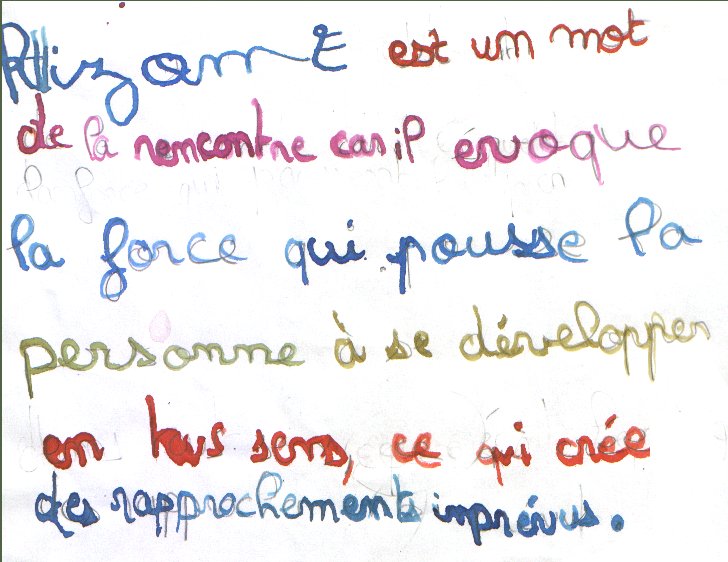 Rhizome est un mot
de la rencontre car il évoque
la force qui pousse la
personne à se développer
en tous sens, ce qui crée
des rapprochements imprévus.